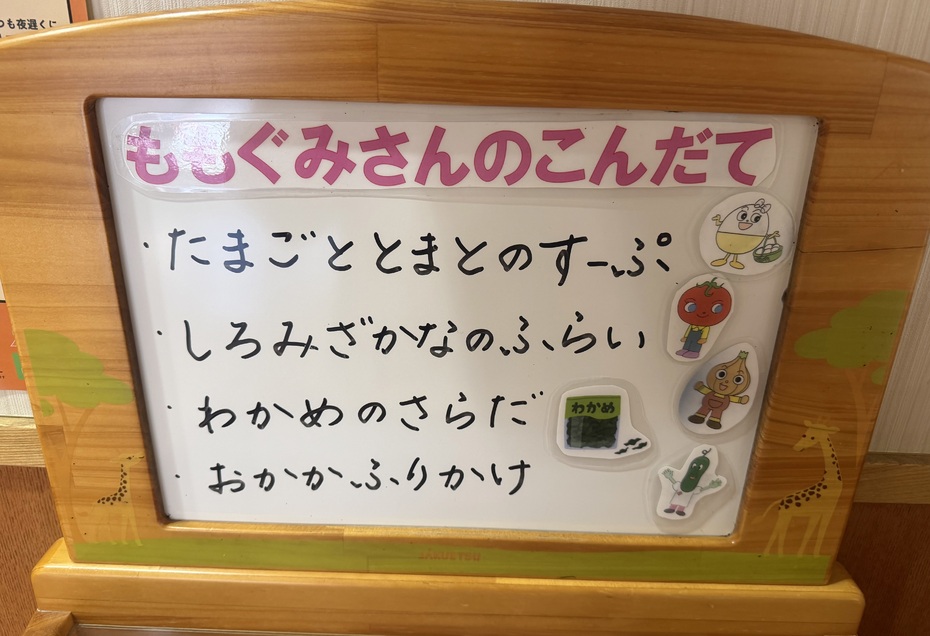 も夜遅くに
ももぐみさんのこんだて
・たまごととまとのすーぷ
・しろみざかなのふらい
・わかめのさらだ
わかめ
・おかかふりかけ
JAKUETSU